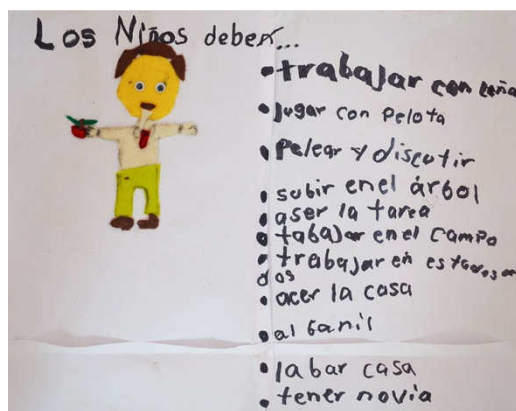 Los Niños deben...
• trabajar con leña
• jugar con Pelota
• Pelear y discutir
• subir en el árbol
• aser la tarea
• tabajar en el campo
• trabajar en estados
dos
• acer la casa
• al banil
• labar casa
• tener novia